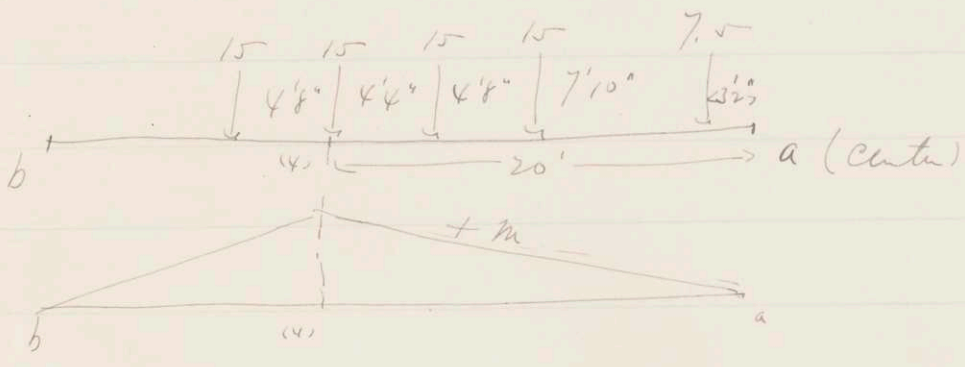 15 15 15 15 7.5
4'8" 4'4" 4'8" 7'10" 3'2"
b (4) 20' a (Center)
+ m
b (4) a